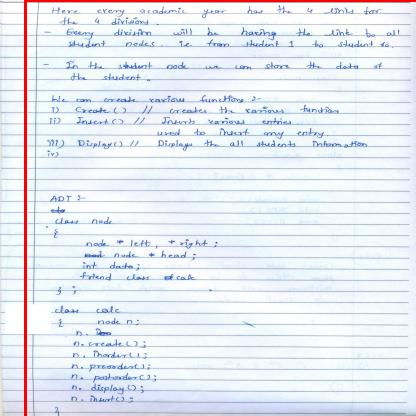 Here every academic year has the 4 links for
the 4 divisions.
- Every division will be having the link to all
student nodes. i.e from student 1 to student 60.
- In the student node we can store the data of
the student.
We can create various functions :-
i) Create () // creates the various function
ii) Insert () // Inserts various entries.
used to insert any entry.
iii) Display() // Displays the all students Information
iv)
ADT :-
class node
{
node * left, * right ;
node * head;
int data;
friend class calc
} ;
class calc
{ node n;
n.
n. create();
n. Inorder();
n. preorder();
n. postorder();
n. display();
n. insert();
}